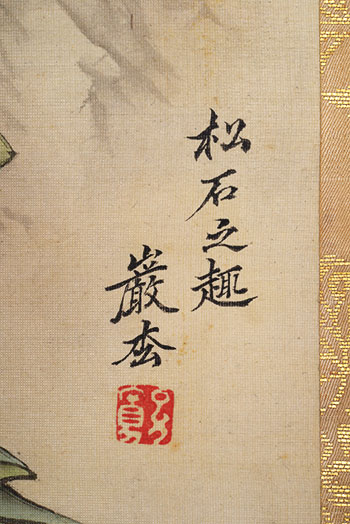 松石之趣
巖杢